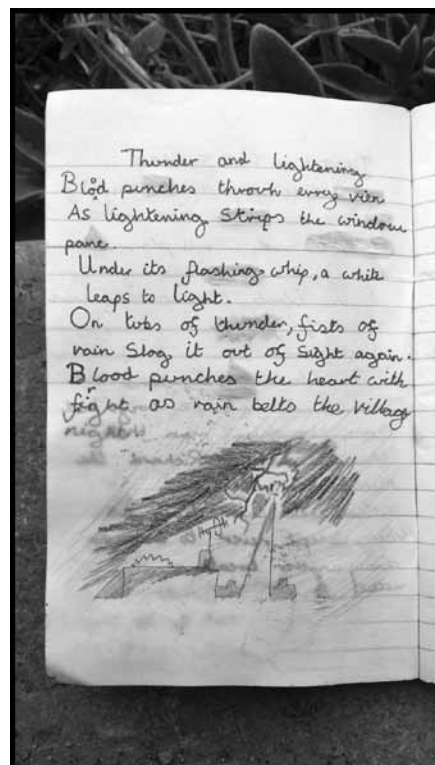 Thunder and lightening
Blod punches throuh evry vien
As lightening Strips the window
pane.
Under its flashing whip, a white
leaps to light.
On tubs of thunder, fists of
rain Slog it out of Sight again.
Blood punches the heart with
fright as rain belts the village
night